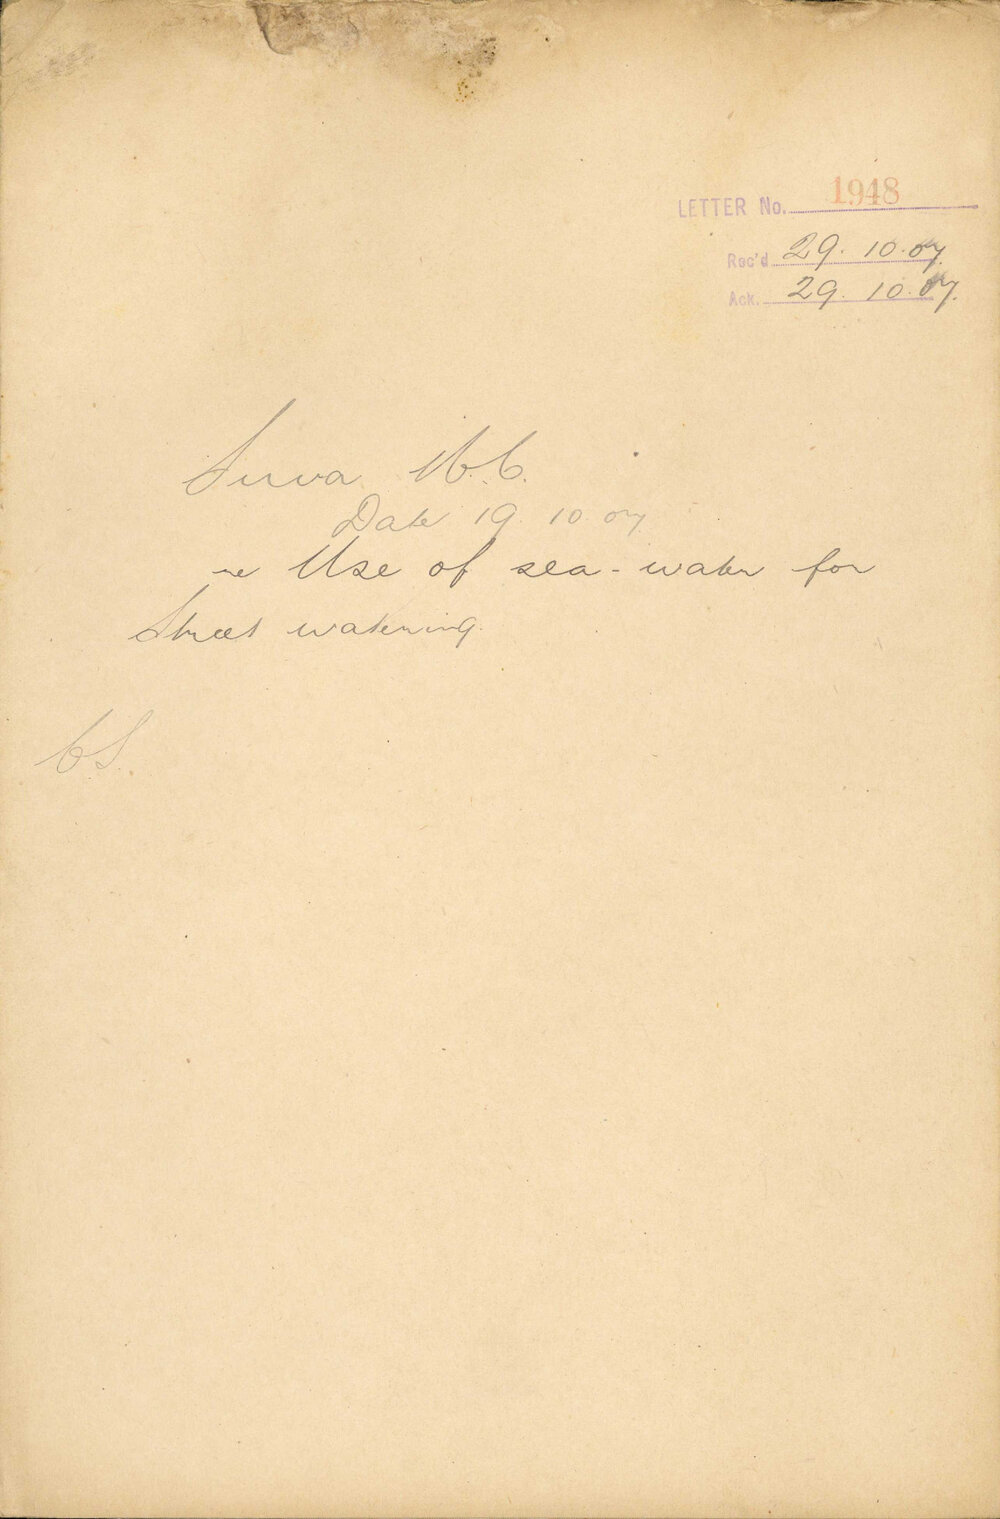 LETTER No. 1948
Rec'd 29. 10. 07.
Ack. 29. 10. 07.
Suva M.C.
Date 19. 10. 07.
re Use of sea-water for
Street watering.
C.S.